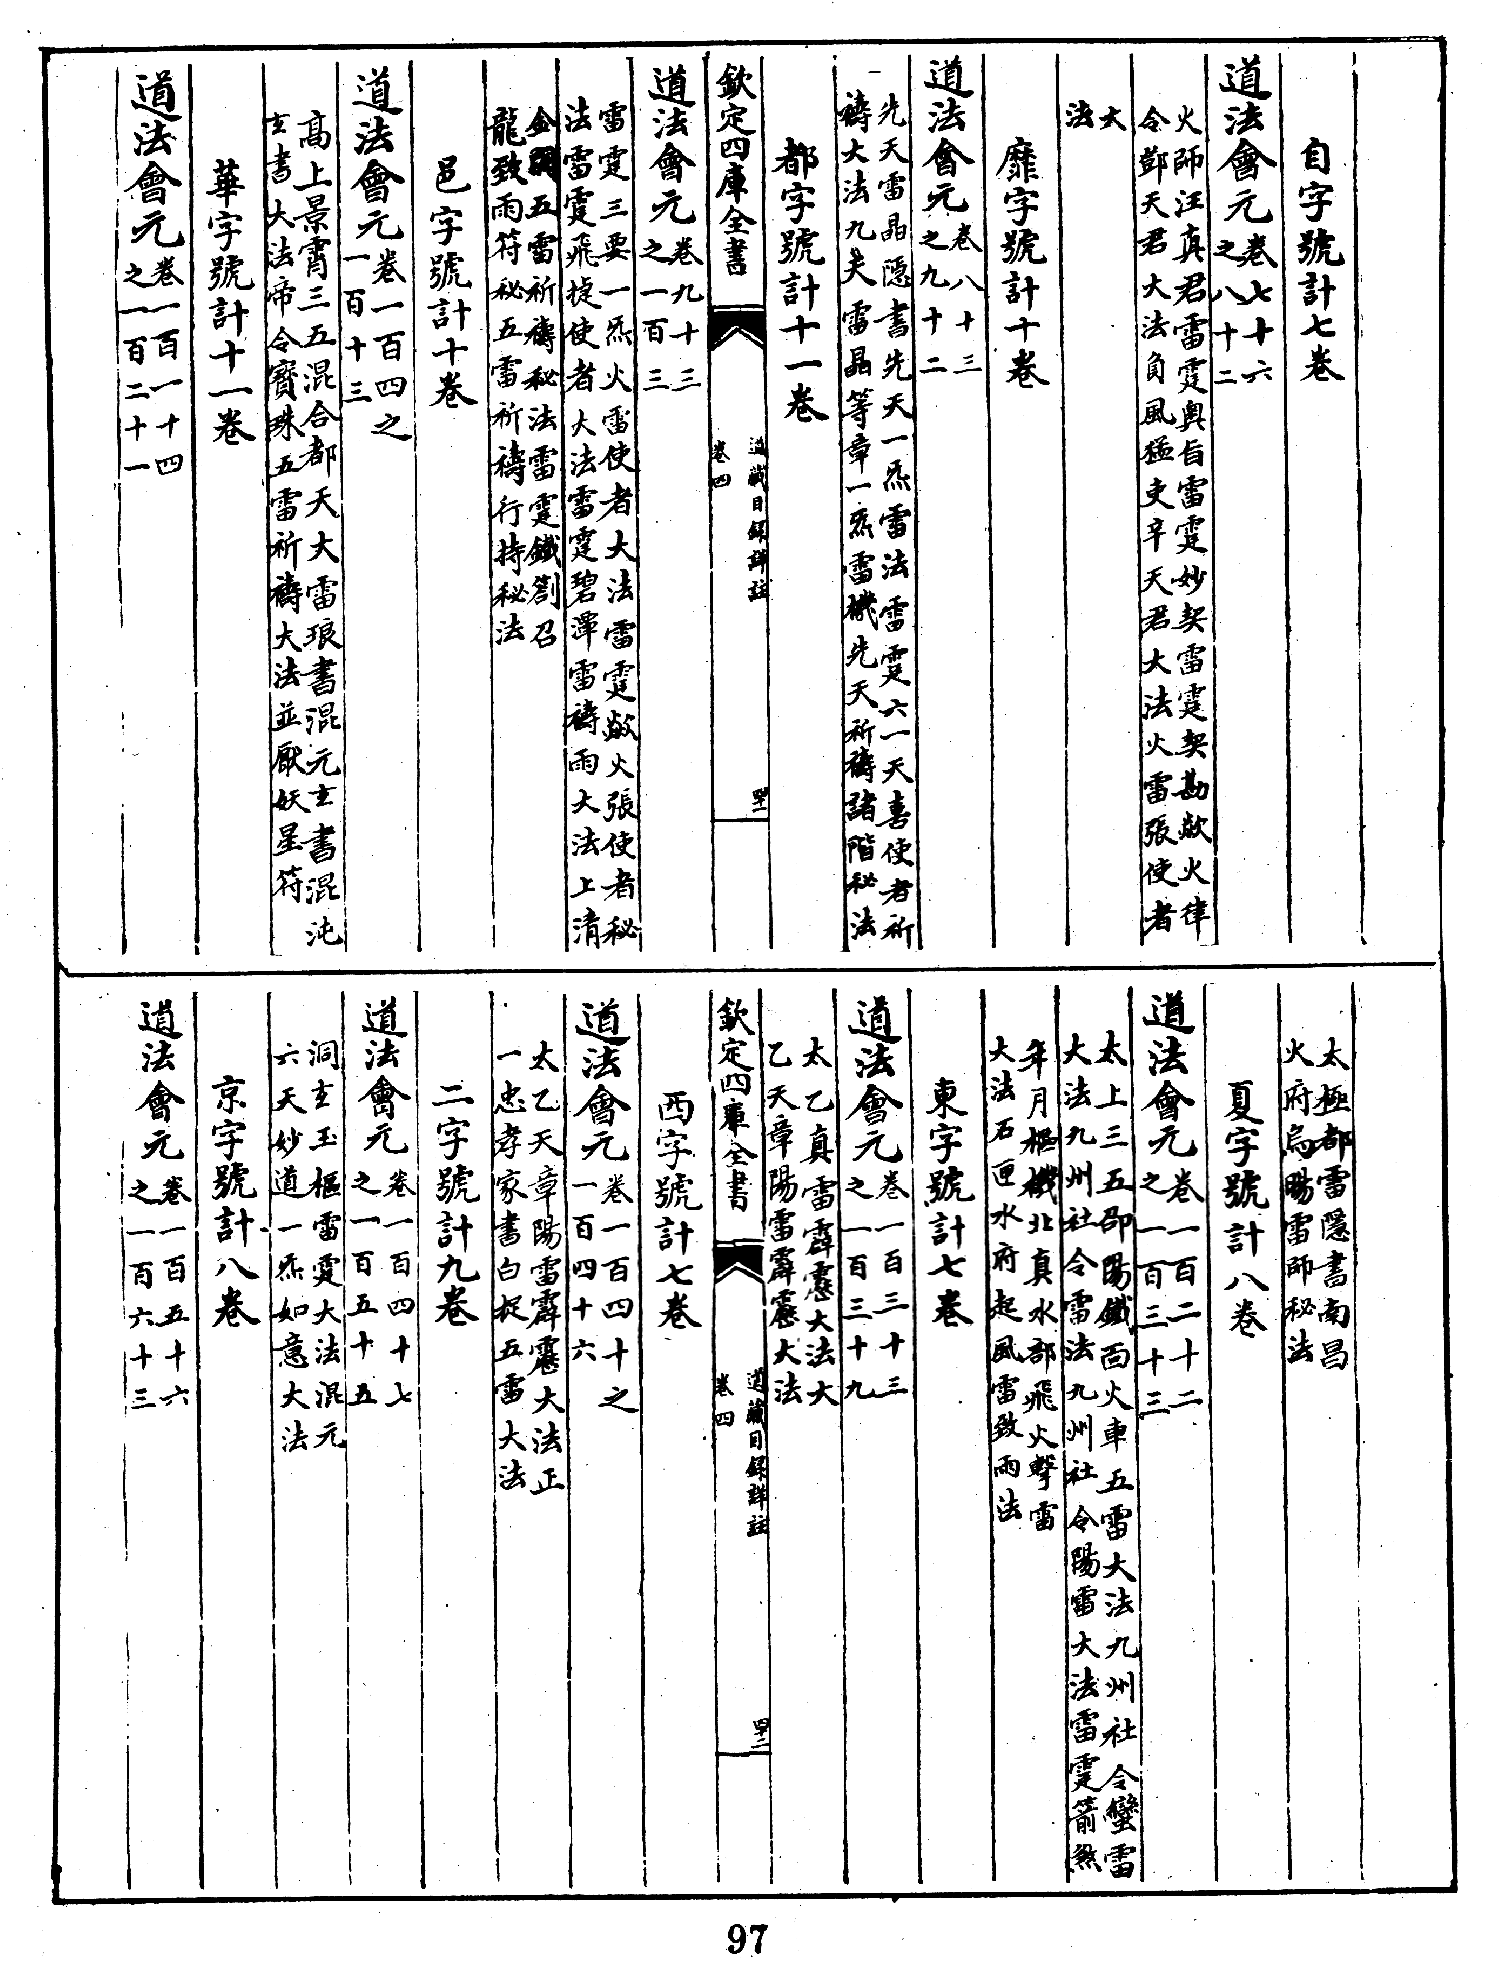 自字號計七卷
道法會元卷七十六
之八十二
火師汪真君雷霆奧旨雷霆妙契雷霆契勘歘火律
令鄧天君大法負風猛吏辛天君大法火雷張使者
大
法
靡字號計十卷
道法會元卷八十三
之九十二
先天雷晶隱書先天一炁雷法雷霆六一天喜使者祈
禱大法九天雷晶等章一炁雷機先天祈禱諸階秘法
都字號計十一卷
欽定四庫全書
道藏目錄詳註
卷四
四十一
道法會元卷九十三
之一百三
雷霆三要一炁火雷使者大法雷霆歘火張使者秘
法雷霆飛捷使者大法雷霆碧潭雷禱雨大法上清
金闕五雷祈禱秘法雷霆鐵劄召
龍致雨符秘五雷祈禱行持秘法
邑字號計十卷
道法會元卷一百四之
一百十三
高上景霄三五混合都天大雷琅書混元玄書混沌
玄書大法帝令寶珠五雷祈禱大法並厭妖星符
華字號計十一卷
道法會元卷一百一十四
之一百二十一
太極都雷隱書南昌
火府烏暘雷師秘法
夏字號計八卷
道法會元卷一百二十二
之一百三十三
太上三五邵陽鐵面火車五雷大法九州社令蠻雷
大法九州社令雷法九州社令陽雷大法雷霆箭煞
年月樞機北真水部飛火擊雷
大法石匣水府起風雷致雨法
東字號計七卷
道法會元卷一百三十三
之一百三十九
太乙真雷霹靂大法太
乙天章陽雷霹靂大法
欽定四庫全書
道藏目錄詳註
卷四
四十二
西字號計七卷
道法會元卷一百四十之
一百四十六
太乙天章陽雷霹靂大法正
一忠孝家書白捉五雷大法
二字號計九卷
道法會元卷一百四十七
之一百五十五
洞玄玉樞雷霆大法混元
六天妙道一炁如意大法
京字號計八卷
道法會元卷一百五十六
之一百六十三
97